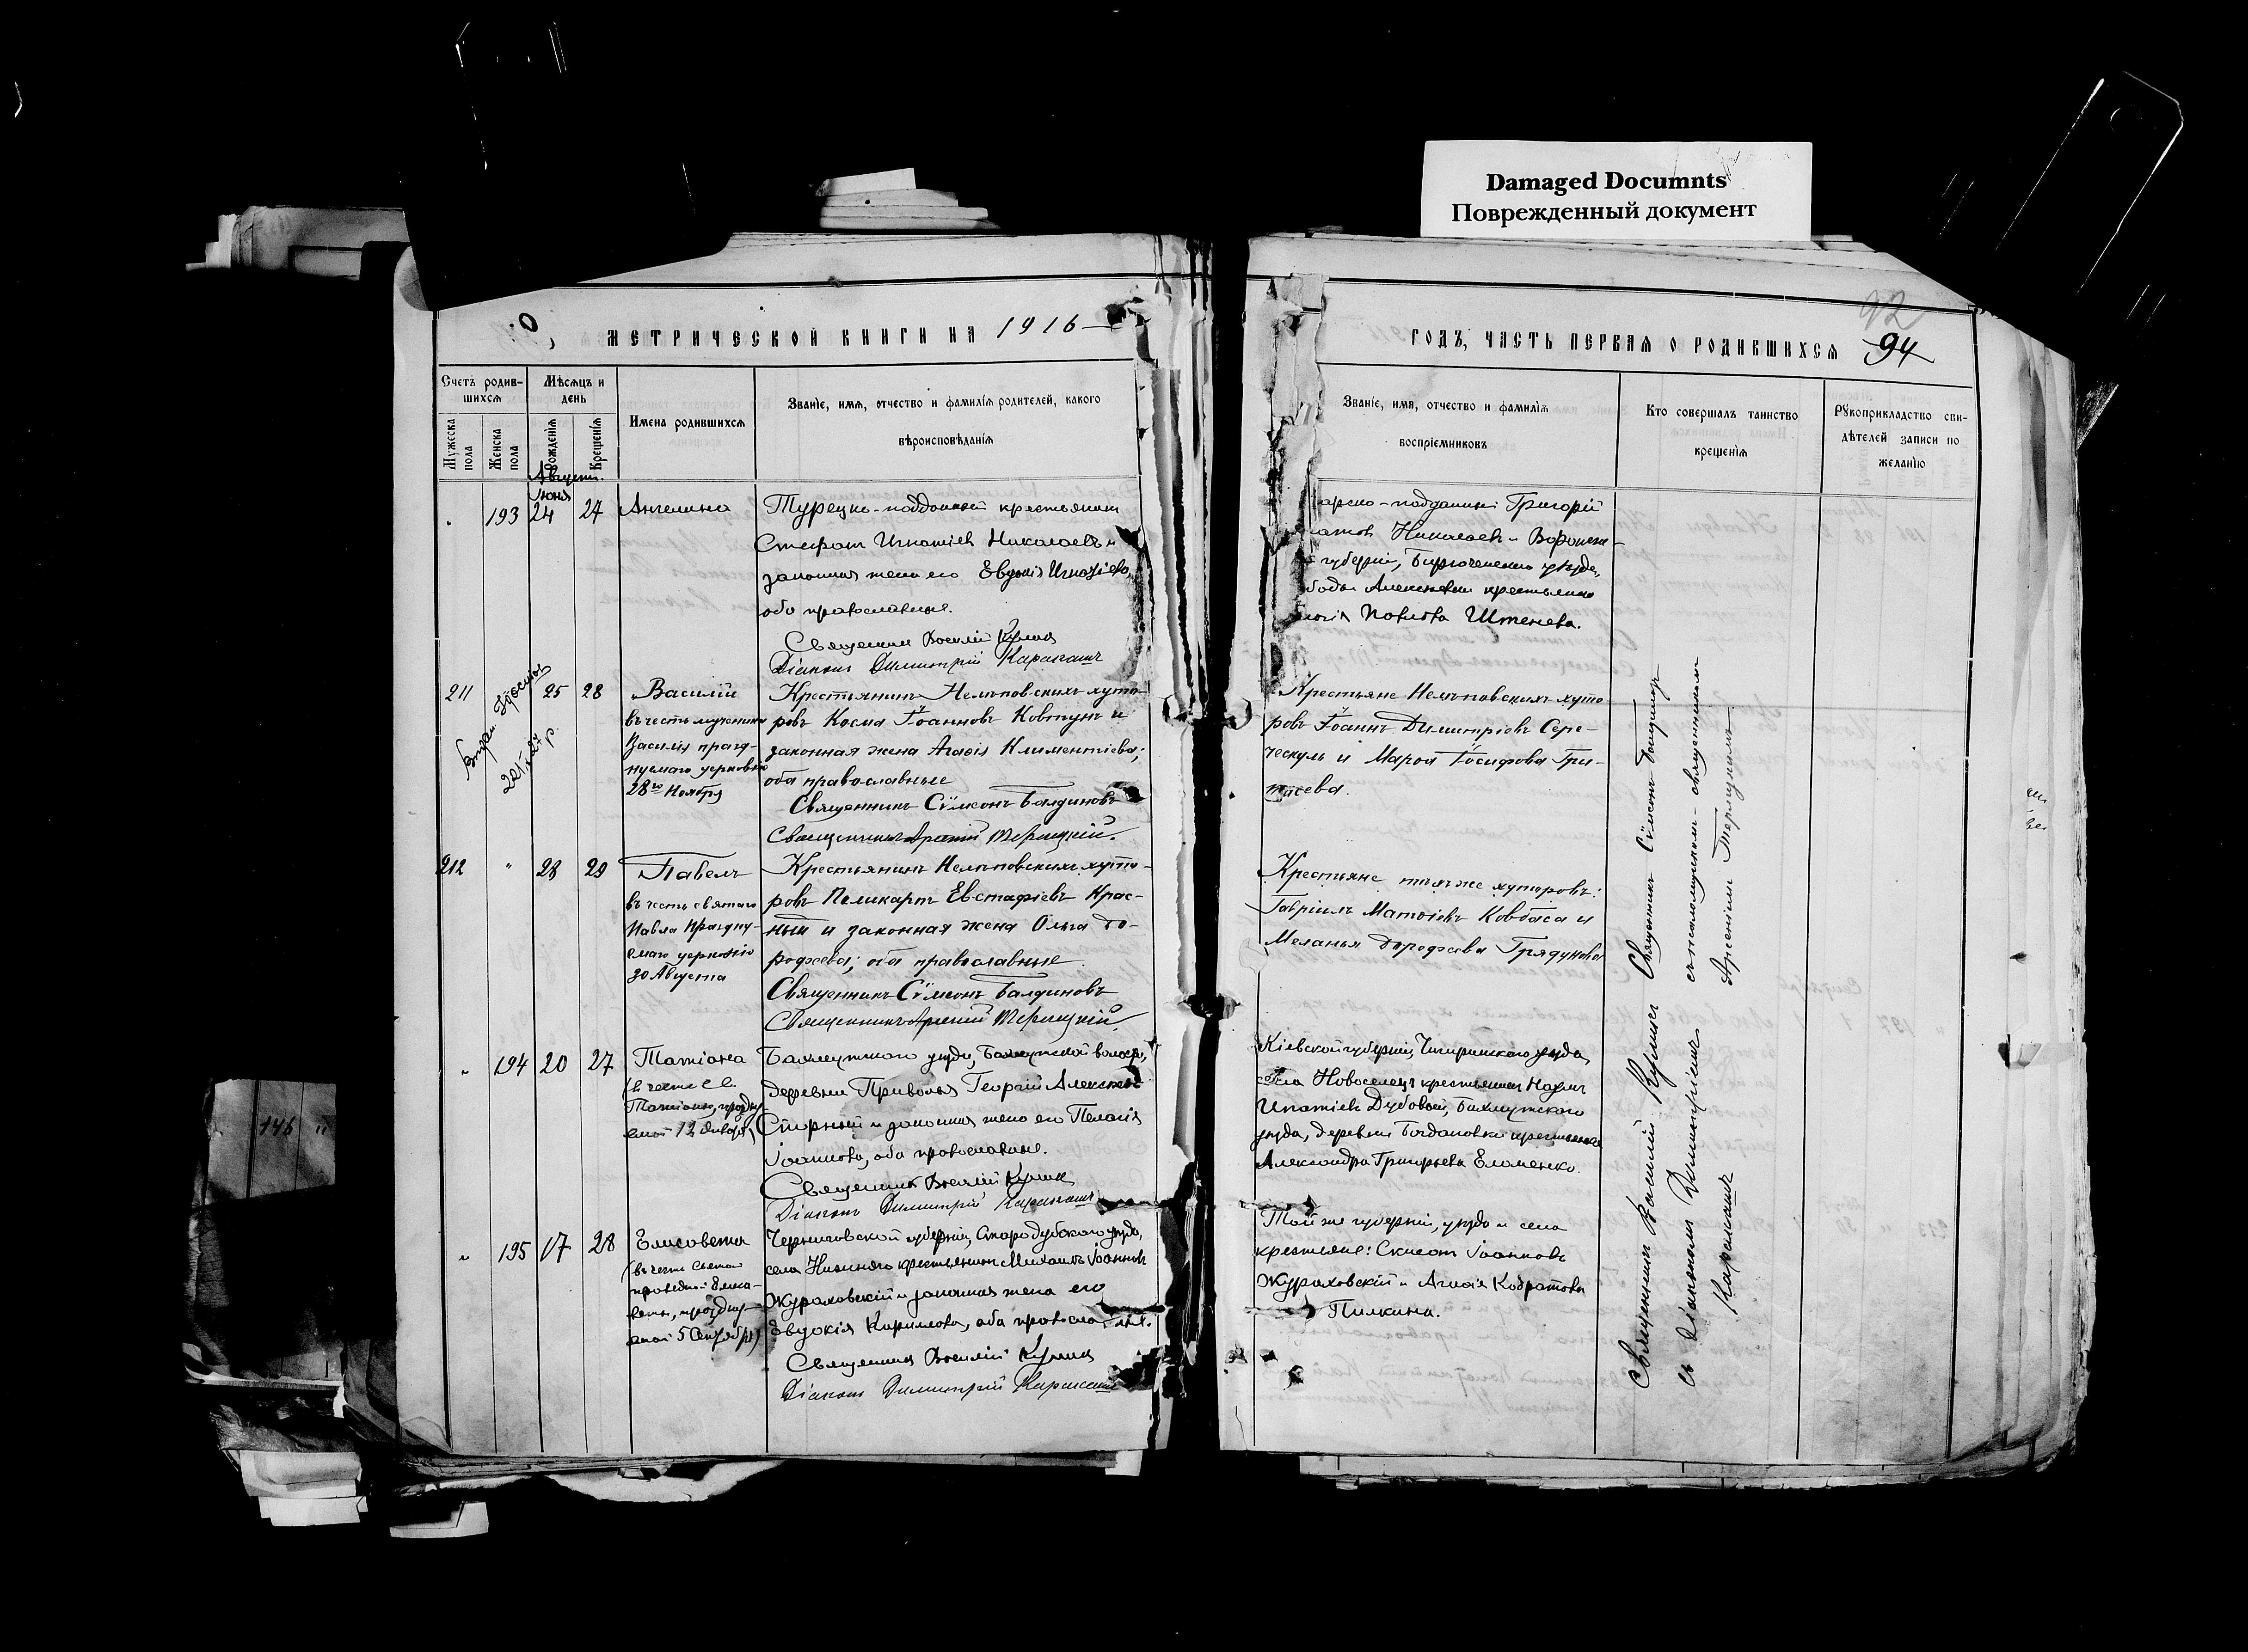 Damaged Documnts
Поврежденный документ
92
МЕТРИЧЕСКОЙ КНИГИ НА 1916
ГОДЪ, ЧАСТЬ ПЕРВАЯ О РОДИВШИХСЯ 94
Счетъ родив-
шихся
Мужеска пола
Женска пола
Мѣсяцъ и
день
Рожденія
Крещенія
Имена родившихся
Званіе, имя, отчество и фамилія родителей, какого
вѣроисповѣданія
Званіе, имя, отчество и фамилія
воспріемниковъ
Кто совершалъ таинство
крещенія
Рукоприкладство сви-
дѣтелей записи по
желанію
Августъ.
Іюня
193 24 27 Ангелина
Турецко-подданный крестьянинъ
Стефанъ Игнатіевъ Николаевъ и
законная жена его Евдокія Игнатіева,
оба православные.
Священникъ Василій Кулик
Діаконъ Димитрій Каракашъ
подданный Григорій
Николаевъ и Воронеж-
губерніи, Бирюченскаго уѣзда,
боды Алексѣевки крестьянка
Павлова Штенева.
211 25 28 Василій
въ честь мученика
Василія празд-
нуемаго церковію
28го Ноября
Крестьянинъ Нелѣповскихъ хуто-
ровъ Косма Іоанновъ Ковтунъ и
законная жена Агаѳія Климентіева;
оба православные
Священникъ Сѵмеонъ Балдиновъ
Священникъ Арсеній
Крестьяне Нелѣповскихъ хуто
ровъ Іоаннъ Димитріевъ Сере-
и Марѳа Іосифова Гри-
212 " 28 29 Павелъ
въ честь святаго
Павла праздну-
емаго церковію
30 Августа
Крестьянинъ Нелѣповскихъ хуто-
ровъ Поликарпъ Евстафіевъ Крас-
ный и законная жена Ольга До-
рофеева; оба православные
Священникъ Сѵмеонъ Балдиновъ
Священникъ Арсеній
Крестьяне тѣхъ же хуторовъ:
Гавріилъ Матѳіевъ Ковбаса и
Меланья Дорофеева Грядунова
" 194 20 27 Татіана
(въ честь св.
Татіаны, праздну-
емой 12 Января)
Бахмутскаго уѣзда, Бахмутской волости,
деревни Приволья Георгій Алексѣевъ
Спорный и законная жена его Пелагія
Іоаннова, оба православные.
Священникъ Василій Кулик
Діаконъ Димитрій Каракашъ
Кіевской губерніи, Чигиринскаго уѣзда,
села Новоселецъ крестьянинъ Наумъ
Игнатіевъ Дубовой, Бахмутскаго
уѣзда, деревни Богдановки крестьянка
Александра Григорьева Еломенко.
" 195 17 28 Елисавета
(въ честь Святой
праведной Елиса-
веты, праздну-
емой 5 Сентября)
Черниговской губерніи, Стародубскаго уѣзда,
села крестьянинъ Михаилъ Іоанновъ
Жураховскій и законная жена его
Евдокія Кириллова, оба православные.
Священникъ Василій Кулик
Діаконъ Димитрій Каракашъ
Той же губерніи, уѣзда и села
крестьяне: Іоанновъ
Жураховскій и Агаѳія
Пилкина.
Священникъ Сѵмеонъ Балдиновъ
съ псаломщикомъ-священникомъ
Арсеніемъ
Священникъ Василій Кулик
съ діакономъ Димитріемъ
Каракашъ
146 "